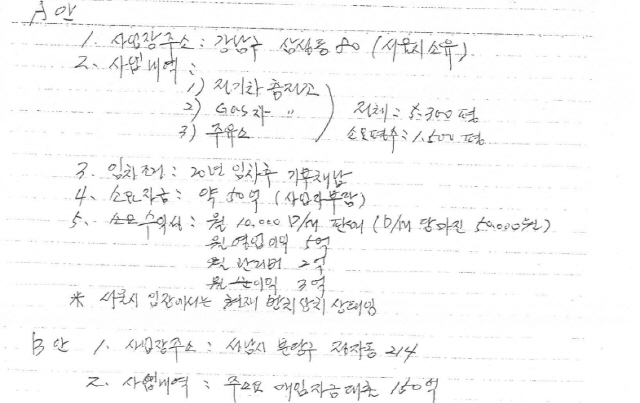 A안
1. 사업장주소 : 강남구 삼성동 80 (서울시소유)
2. 사업내역 :
1) 전기차 충전소
2) Gas차 〃 전체 : 5.300평
3) 주유소 소요평수 : 1.500평
3. 임차조건 : 20년 임차후 기부채납
4. 소요자금 : 약 50억 (사업자부담)
5. 소요수익성 : 월 10.000 D/M 판매 (D/M 당마진 50,000원)
월영업이익 5억
월 관리비 2억
월 순이익 3억
* 서울시 입장에서는 현재 방치 상태임
B안 1. 사업장주소 : 성남시 분당구 정자동 214
2. 사업내역 : 주유소 매입자금대출 150억